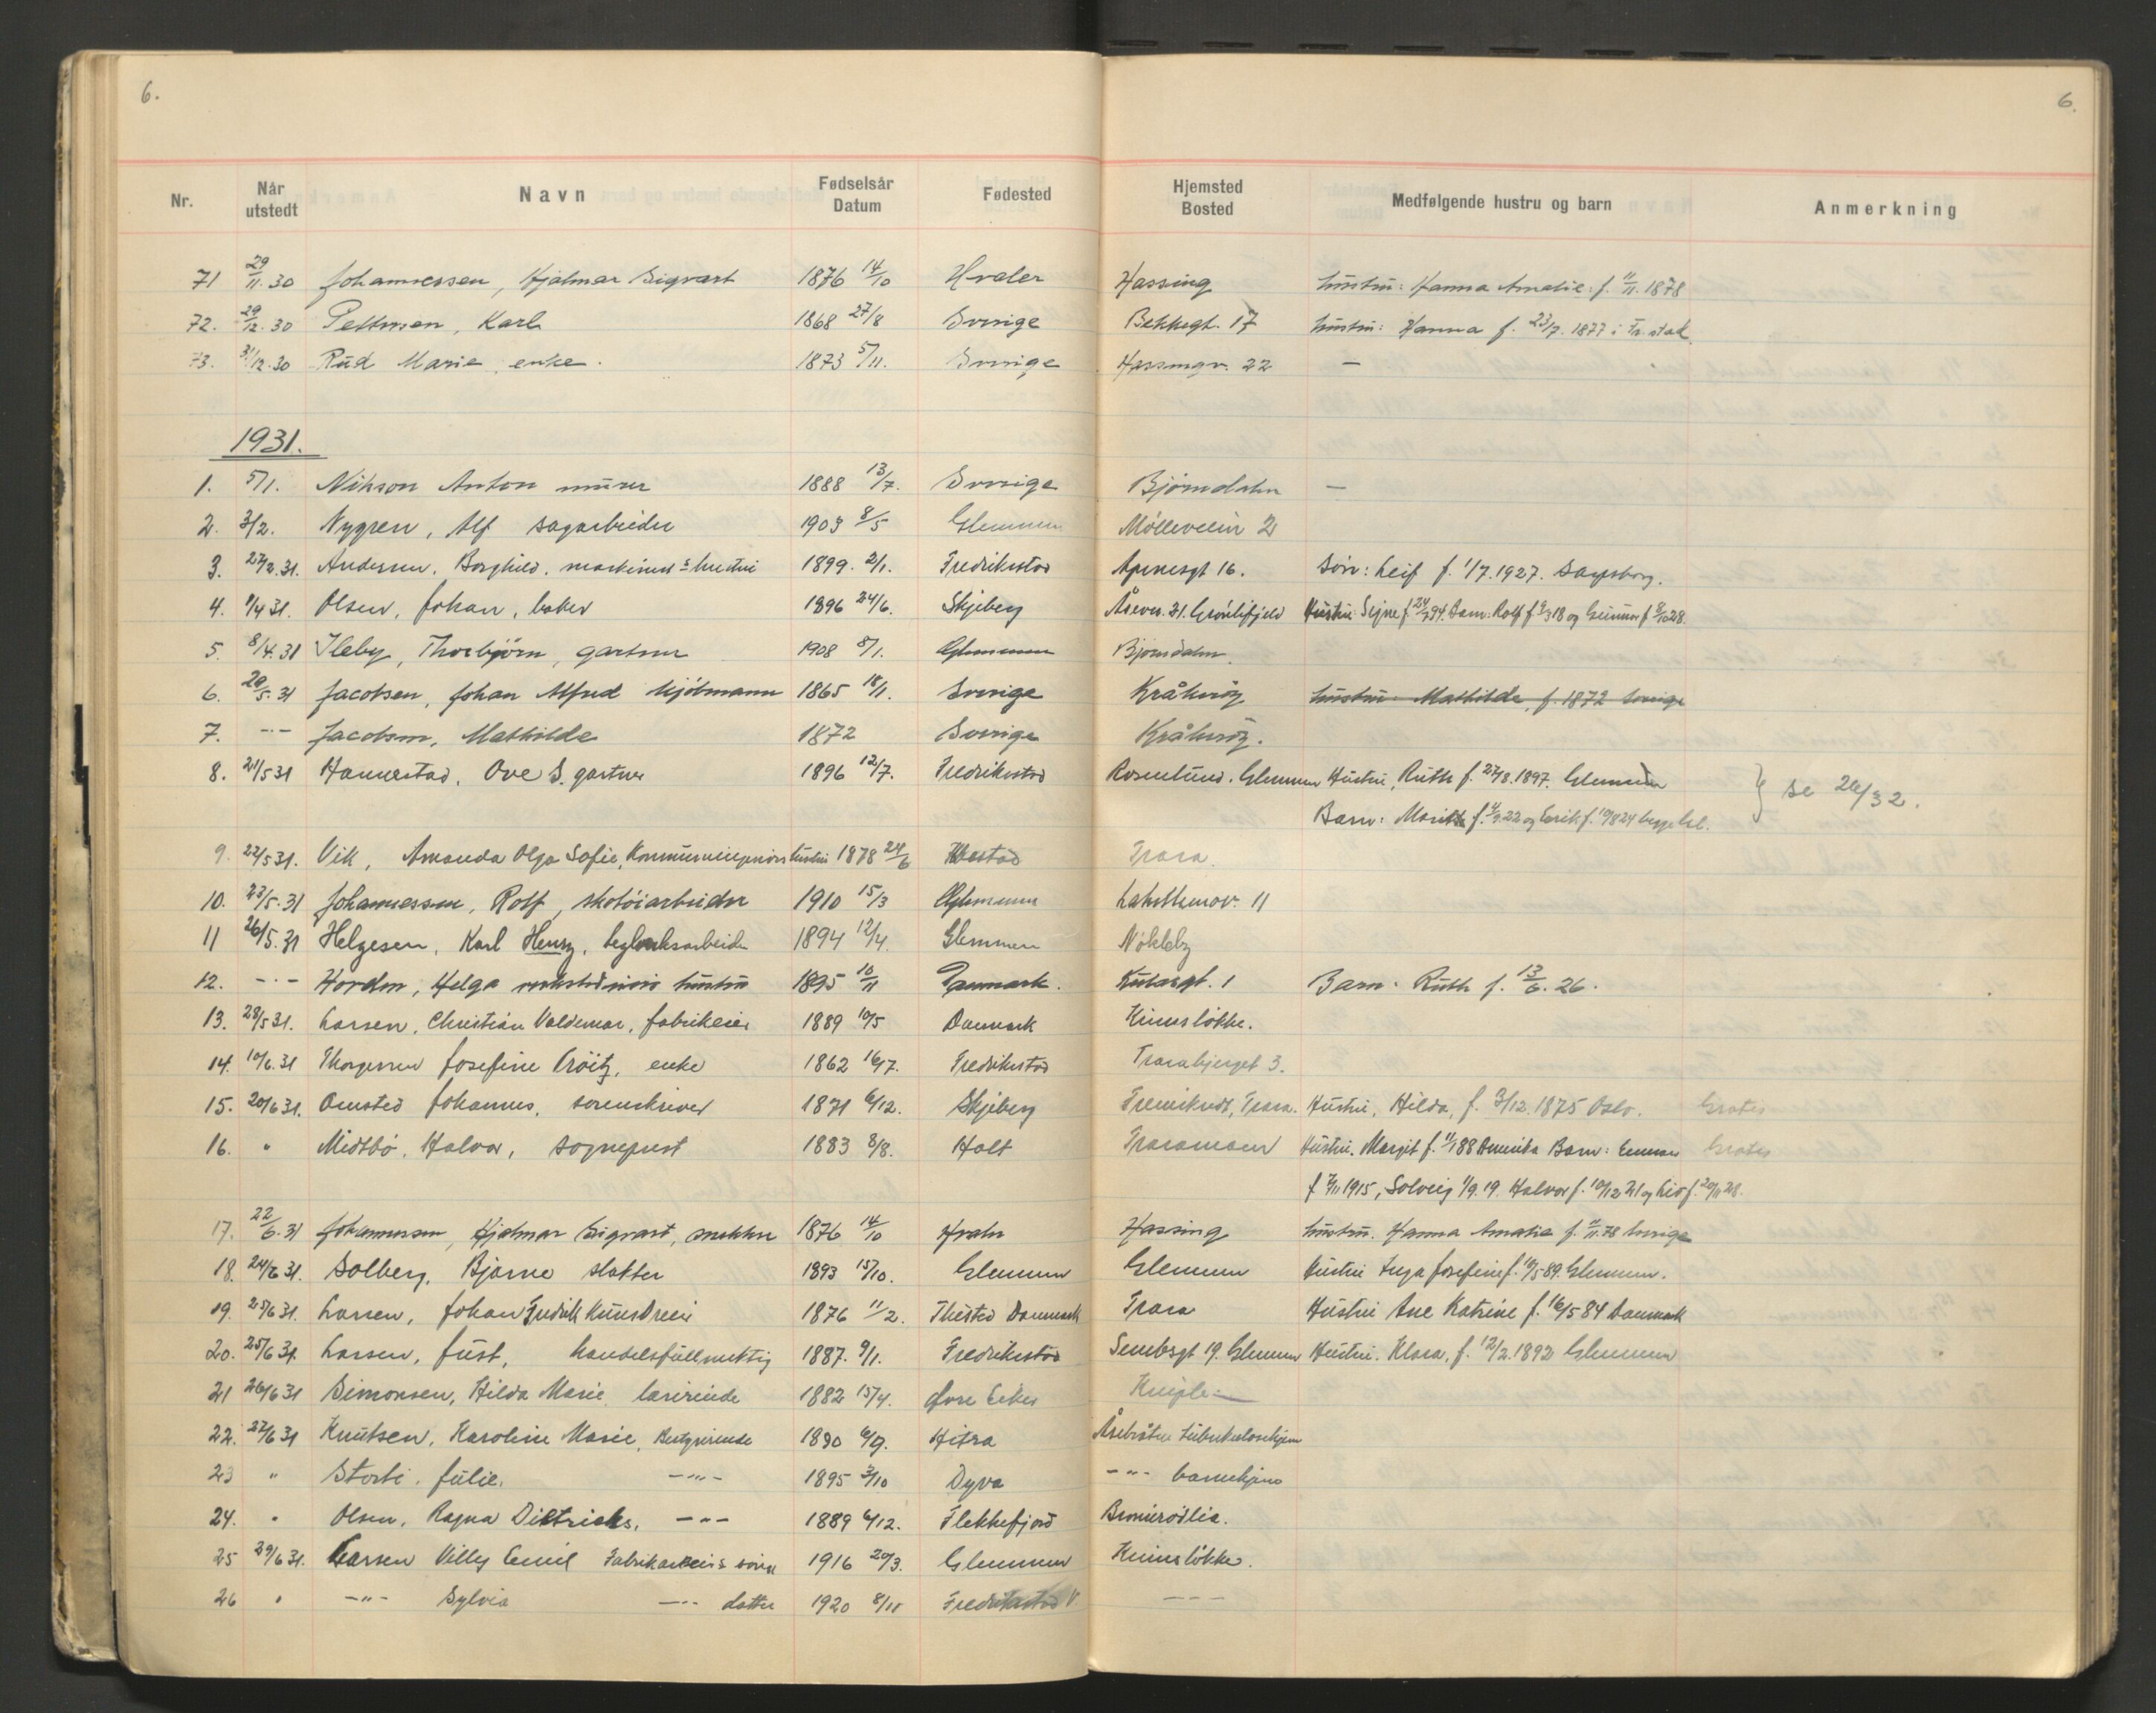 6.
6.
Nr. Når utstedt Navn Fødselsår Datum Fødested Hjemsted Bosted Medfølgende hustru og barn Anmerkning
71 29/11.30 Johannessen, Hjalmar Sigvart 1876 14/10 Hvaler Hassing hustru: Hanna Amalie: f. 11/11.1878
72. 29/12.30 Karl 1868 27/8 Sverige Bekkegt. 17 hustru: Hanna f. 23/7.1877 i Fr.stad
73. 31/12.30 Rud Marie, enke. 1873 5/11. Sverige 22 —
1931.
1. 5/1. Nilsson Anton murer 1888 13/7. Sverige Bjørndalen —
2. 3/2. Nygren, Alf sagarbeider 1903 8/5 Glemmen Mölleveien 2
3. 27/2.31. Andersen, Borghild, maskinist s hustru 1899. 2/1. Fredrikstad Apenesgt 16. Sön: Leif f. 1/7.1927. Sarpsborg.
4. 1/4 31. Olsen, Johan, baker 1896 24/6. Skjeberg Åsevn. 31. Grönlifjeld Hustru: Signe f. 24/7 94. Barn: Rolf f. 9/3 18 og Gunnar f 8/10 28.
5. 8/4.31 Ileby, Thorbjörn, gartner 1908 8/1. Glemmen Bjørndalen.
6. 20/5.31 Jacobsen, Johan Alfred sjömann 1865 18/11. Sverige Kråkeröy hustru: Mathilde, f. 1872 Sverige
7. -"- Jacobsen, Mathilde 1872 Sverige Kråkeröy.
8. 21/5 31 Hannestad, Ove S. gartner 1896 12/7. Fredrikstad Rosenlund. Glemmen Hustru, Ruth f. 27/8.1897. Glemmen } se 26/32.
Barn: f. 4/9.22 og Erik f. 10/8 24 begge Gl.
9. 22/5 31. Vik, Amanda Olga Sofie, Kommuneingeniörs hustru 1878 24/6 Trara.
10. 23/5.31 Johannessen, Rolf, skotöiarbeider 1910 15/3 Glemmen 11
11 26/5.31 Helgesen, Karl Henry, teglverksarbeider 1894 12/4. Glemmen Nökleby
12. -"- Helga hustru 1895 10/11 Danmark. 1 Barn: Ruth f. 13/6.26.
13. 28/5 31. Larsen, Christian Valdemar, fabrikeier 1889 10/5 Danmark
14. 10/6.31 Josefine Tröitz, enke 1862 16/7. Fredrikstad Trarabjerget 3.
15. 20/6 31. Omsted Johannes, sorenskriver 1871 6/12. Skjeberg Trara. Hustru, Hilda, f. 3/12.1875 Oslo. Gratis
16. " Midtbö, Halvor, sogneprest 1883 8/8. Holt Traramoen Hustru. Margit f. 11/1 88 Amerika Barn: Gratis
f 7/11 1915, Solveig 1/9.19. Halvor f. 10/12 21 og Liv f. 20/11 28.
17. 22/6.31 Johannessen, Hjalmar Sigvart, snekker 1876 14/10 Hvaler Hassing hustru. Hanna Amalie f. 11/11.78 Sverige
18. 24/6 31. Solberg, Bjarne slakter 1893 15/10. Glemmen Glemmen Hustru Inga Josefine f. 10/5 89. Glemmen.
19. 25/6 31. Larsen, Johan Fredrik Kunstdreier 1876 11/2. Thisted Danmark Trara Hustru Ane Katrine f. 16/5 84 Danmark
20. 25/6 31. Larsen, Just, handelsfullmektig 1887. 9/1. Fredrikstad 19. Glemmen Hustru. Klara, f. 12/2.1892 Glemmen
21 26/6 31 Simonsen, Hilda Marie lærerinde 1882 15/4. Övre Eiker Kniple
22. 27/6 31 Knutsen, Karoline Marie, Bestyrerinde 1890 6/9. Hitra Åsebråten tuberkulosehjem
23 " Storli. Julie. -"- 1895 3/10 Dyva -"- barnehjem
24. " Olsen. Ragna Dietrichs. -"- 1889 6/12. Flekkefjord
25 29/6 31. Larsen Villy Emil Fabrikeiers sönn 1916 20/3. Glemmen
26 " -"- Sylvia -"- datter 1920 8/11 Fredrikstad V ---